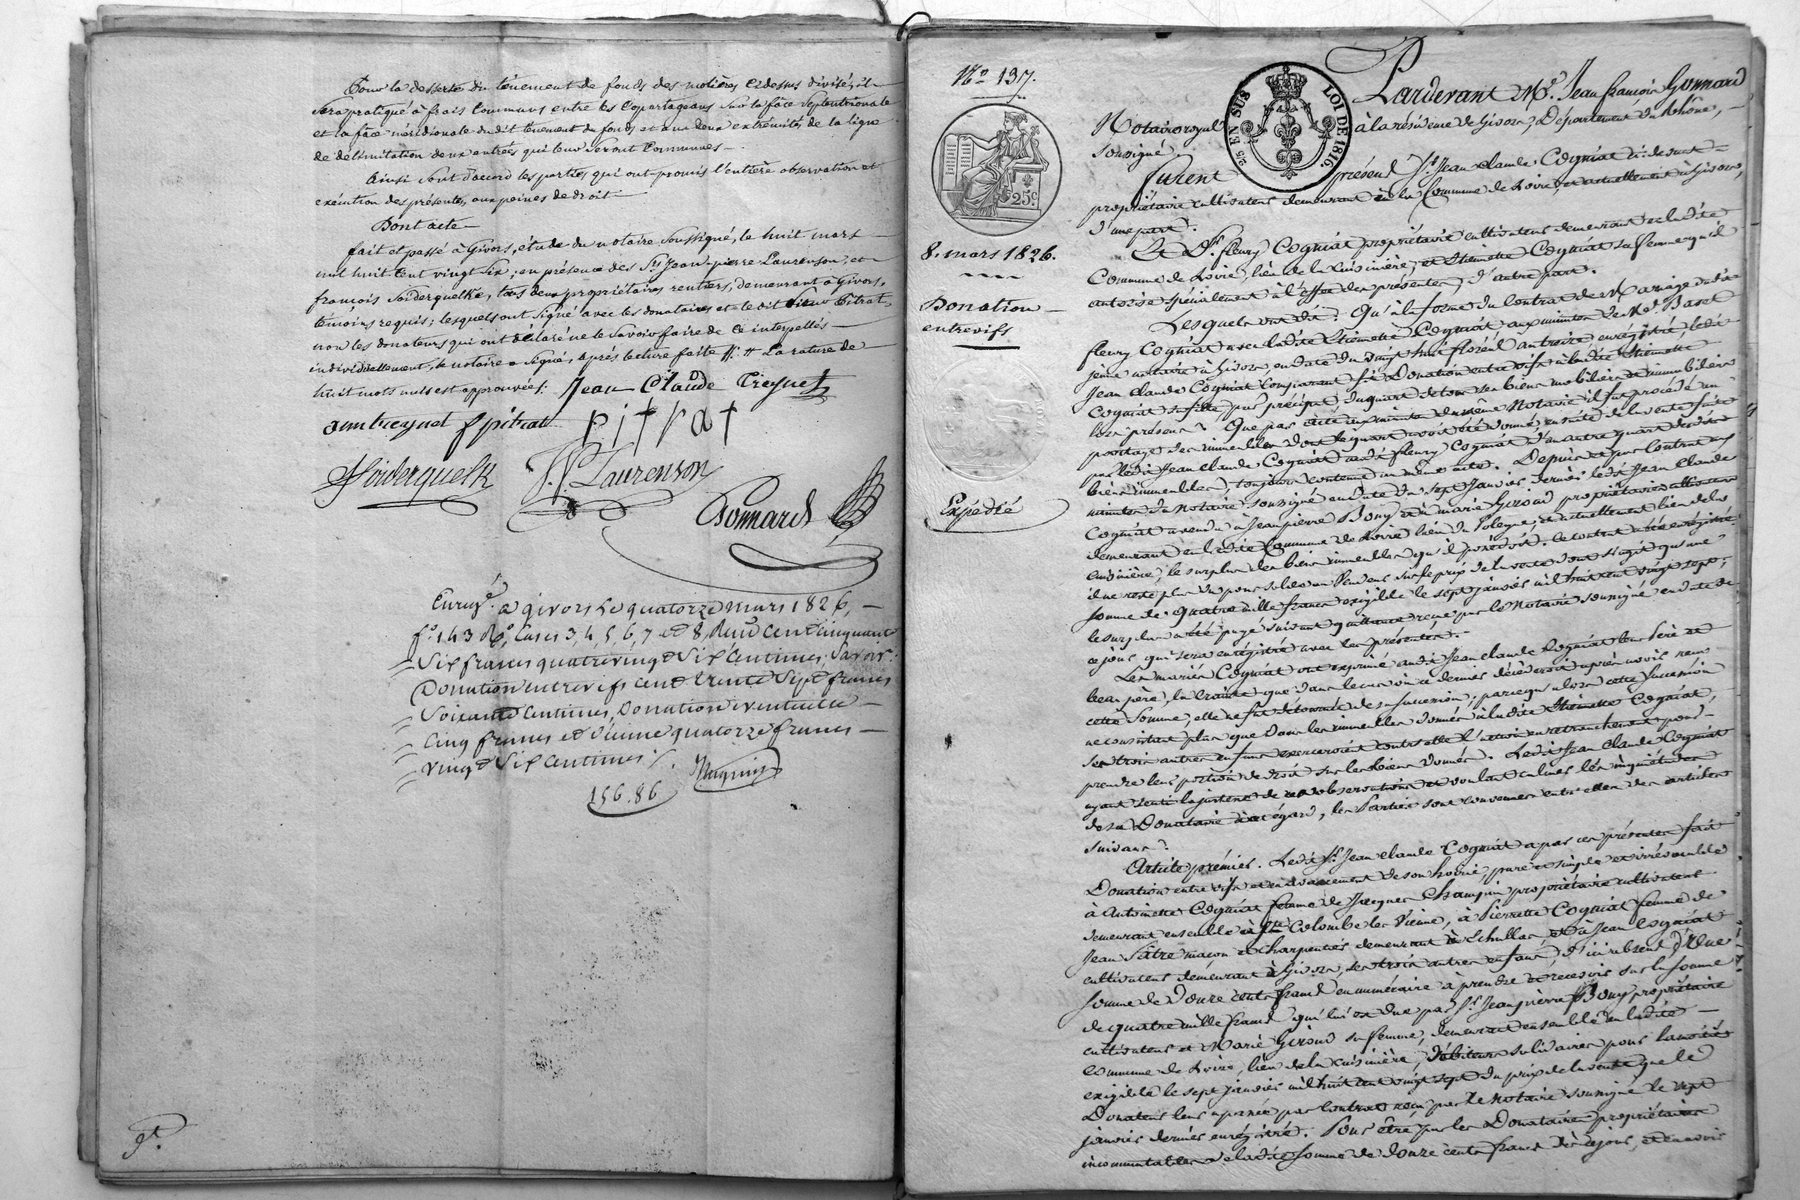 Pour la desserte du tènement de fonds des molières cidessus divisé, il
sera pratiqué à frais communs entre les copartageans sur la face Septentrionale
et la face méridionale dudit tènement du fonds et aux deux extrémités de la ligne
de délimitation deux entrées qui leur seront communes.
Ainsi sont d'accord les parties qui ont promis l'entière observation et
exécution des présentes, aux peines de droit
Dont acte
fait et passé à Givors, étude du notaire soussigné, le huit mars
mil huit cent vingt six; en présence des Srs Jean-pierre Laurenson, et
françois Soiderquelke, tous deux propriétaires rentiers, demeurant à Givors,
témoins requis; lesquels ont signé avec les donataires et le dit Pitrat,
non les donateurs qui ont déclaré ne le savoir faire de ce interpellés
individuellement, le notaire a signé, après lecture faite La rature de
huit mots nuls est approuvée. Jean Claude
pitrat pitrat
J. P. Laurenson
Gonnard
Enregé à givors le quatorze mars 1826,
fo 143 Ro, Cases 3 4 5 6, 7 et 8, Reçu cent cinquante
Six francs quatre vingt Six Centimes, Savoir:
Donation entrevifs cent trente Sept francs
Soixante Centimes, Donation éventuelle
Cinq francs et dixme quatorze francs
vingt Six Centimes
156.86
No 137.
25c
8. mars 1826.
Donation
entrevifs
Expédié
5/6 EN SUS LOI DE 1816
Pardevant Me Jean françois Gonnard
Notaire royal à la résidence de Givors, Département du Rhône,
soussigné
furent présens Sr Jean Claude Cogniat
propriétaire cultivateur demeurant en la Commune de Loire, et actuellement à Givors,
d'une part.
Et Sr fleury Cogniat propriétaire cultivateur demeurant en ladite
Commune de Loire, lieu de la Cuisinière, et Etiennette Cogniat sa femme qu'il
autorise spécialement à l'effet des présentes, d'autre part.
Lesquels ont dit: Qu'à la forme du Contrat de Mariage dudit
fleury Cogniat avec ladite Etiennette Cogniat aux minutes de Me
notaire à Givors, en date du vingt huit floréal an treize enrégistré ledit
Jean Claude Cogniat Comparant fit Donation entre vifs à ladite Etiennette
Cogniat sa fille, par préciput du quart de tous ses biens mobiliers et immobiliers
lors présens. Que par acte aux minutes du même Notaire il fut procédé au
partage des immeubles dont le quart avoit été donné, ensuite de la vente faite
par ledit Jean Claude Cogniat audit fleury Cogniat d'un autre quart desdits
biens immeubles, toujours contenue au même acte. Depuis et par Contrat aux
minutes du Notaire soussigné en date du sept janvier dernier ledit Jean Claude
Cogniat a vendu à Jean pierre Bony et à marie Giroud propriétaires cultivateurs
demeurant en ladite Commune de Loire lieu de Pologne, et actuellement lieu de la
Cuisinière, le surplus des biens immeubles qu'il possédoit. Ce contrat a été enrégistré
il ne reste plus dû pour solde au Vendeur sur le prix de la vente dont s'agit qu'une
somme de quatre mille francs exigible le sept janvier mil huit cent vingt sept;
le surplus a été payé suivant quittance reçue par le Notaire soussigné en date de
ce jour qui sera enrégistrée avec les présentes.
Les mariés Cogniat ont exprimé audit Jean Claude Cogniat leur Père et
beau père, la crainte que dans le cas où ce dernier décéderoit après avoir reçu
cette somme, elle ne fut détournée de sa succession, parcequ'alors cette succession
ne consistant plus que dans les immeubles donnés à ladite Etiennette Cogniat,
ses trois autres enfans exerceroient contre elle l'action en retranchement pour
prendre leur portion de droit sur les biens donnés. Ledit Jean Claude Cogniat
ayant senti la justesse de ces observations et voulant calmer les inquiétudes
de sa Donataire à cet égard, les Parties sont convenues entre elles des articles
suivans.
Article prémier. Ledit Sr Jean Claude Cogniat a par ces présentes fait
Donation entre vifs et en avancement de son hoirie, pure et simple et irrévocable
à Antoinette Cogniat femme de Jacques Champin propriétaire cultivateur
demeurant ensemble à Ste Colombe les Vienne, à Pierrette Cogniat femme de
Jean Pâtre maçon et charpentier demeurant à Echallas et à Jean Cogniat
cultivateur demeurant à Givors, ses trois autres enfans, d'ici absens, D'Une
somme de Douze cents francs en numéraire à prendre et recevoir sur la somme
de quatre mille francs qui lui est due par Sr Jean pierre Bony propriétaire
cultivateur et Marie Giroud sa femme, demeurant ensemble en ladite
Commune de Loire, lieu de la Cuisinière, débiteurs solidaires pour la moitié
exigible le sept janvier mil huit cent vingt sept du prix de la vente que le
Donateur leur a passée par Contrat reçu par le Notaire soussigné le sept
janvier dernier enrégistré. Pour être par les Donataires propriétaires
incommutables de ladite somme de douze cents francs dès ce jour, et en avoir